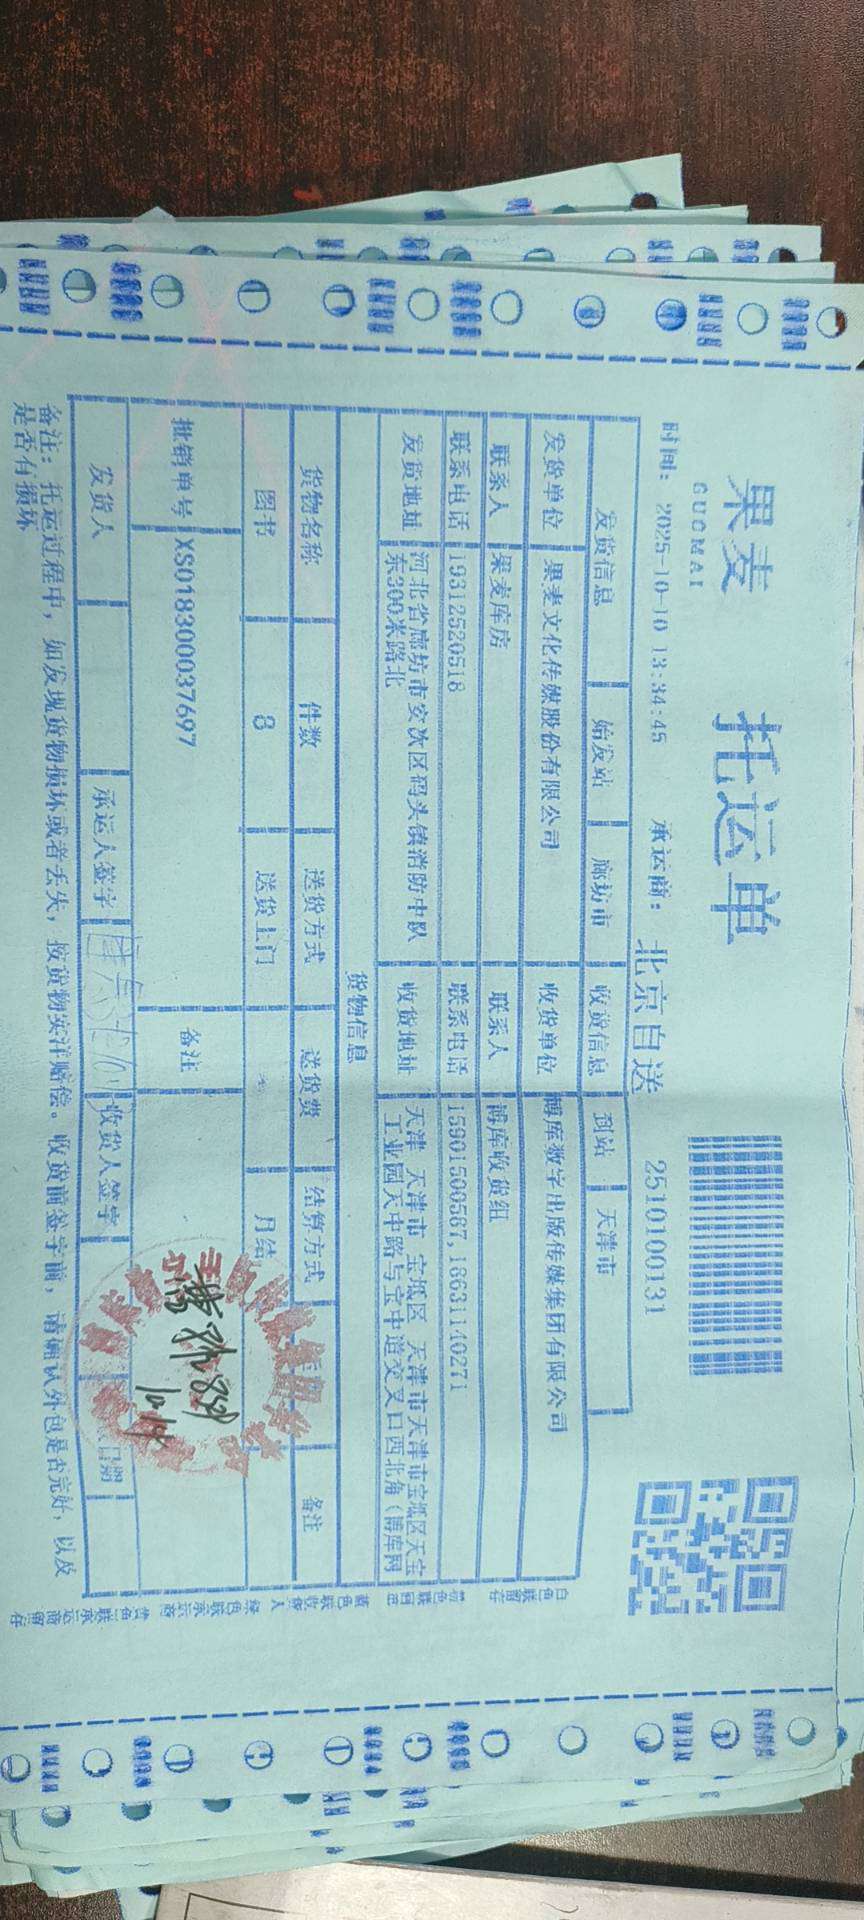 果麦
GUOMAI
托运单
时间: 2025-10-10 13:34:45
承运商: 北京自送
2510100131
发货信息 始发站 廊坊市 收货信息 到站 天津市
发货单位 果麦文化传媒股份有限公司 收货单位 博库数字出版传媒集团有限公司
联系人 果麦库房 联系人 博库收货组
联系电话 19312520518 联系电话 15901500587,18631140271
发货地址 河北省廊坊市安次区码头镇消防中队 收货地址 天津 天津市 宝坻区 天津市天津市宝坻区天宝
东300米路北 工业园天中路与宝中道交叉口西北角(博库网
货物信息
货物名称 件数 送货方式 送货费 结算方式 备注
图书 8 送货上门 月结
批销单号 XS018300037697 备注
发货人 承运人签字 收货人签字 日期
10/14
备注: 托运过程中, 如发现货物损坏或者丢失, 按货物实洋赔偿。收货前签字前, 请确认外包是否完好, 以及
是否有损坏
白色联留存
蓝色联收货人
绿色联承运商
黄色联承运商留存